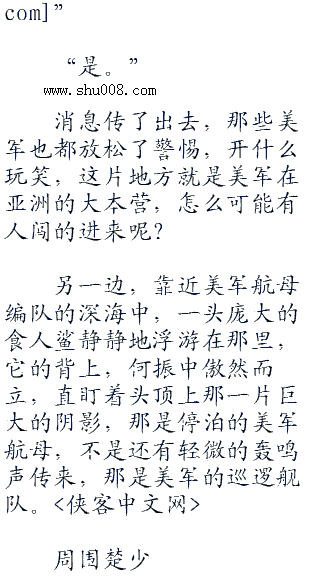 com]”
“是。”
www.shu008.com
消息传了出去，那些美
军也都放松了警惕，开什么
玩笑，这片地方就是美军在
亚洲的大本营，怎么可能有
人闯的进来呢？
另一边，靠近美军航母
编队的深海中，一头庞大的
食人鲨静静地浮游在那里，
它的背上，何振中傲然而
立，直盯着头顶上那一片巨
大的阴影，那是停泊的美军
航母，不是还有轻微的轰鸣
声传来，那是美军的巡逻舰
队。<侠客中文网>
周围楚少